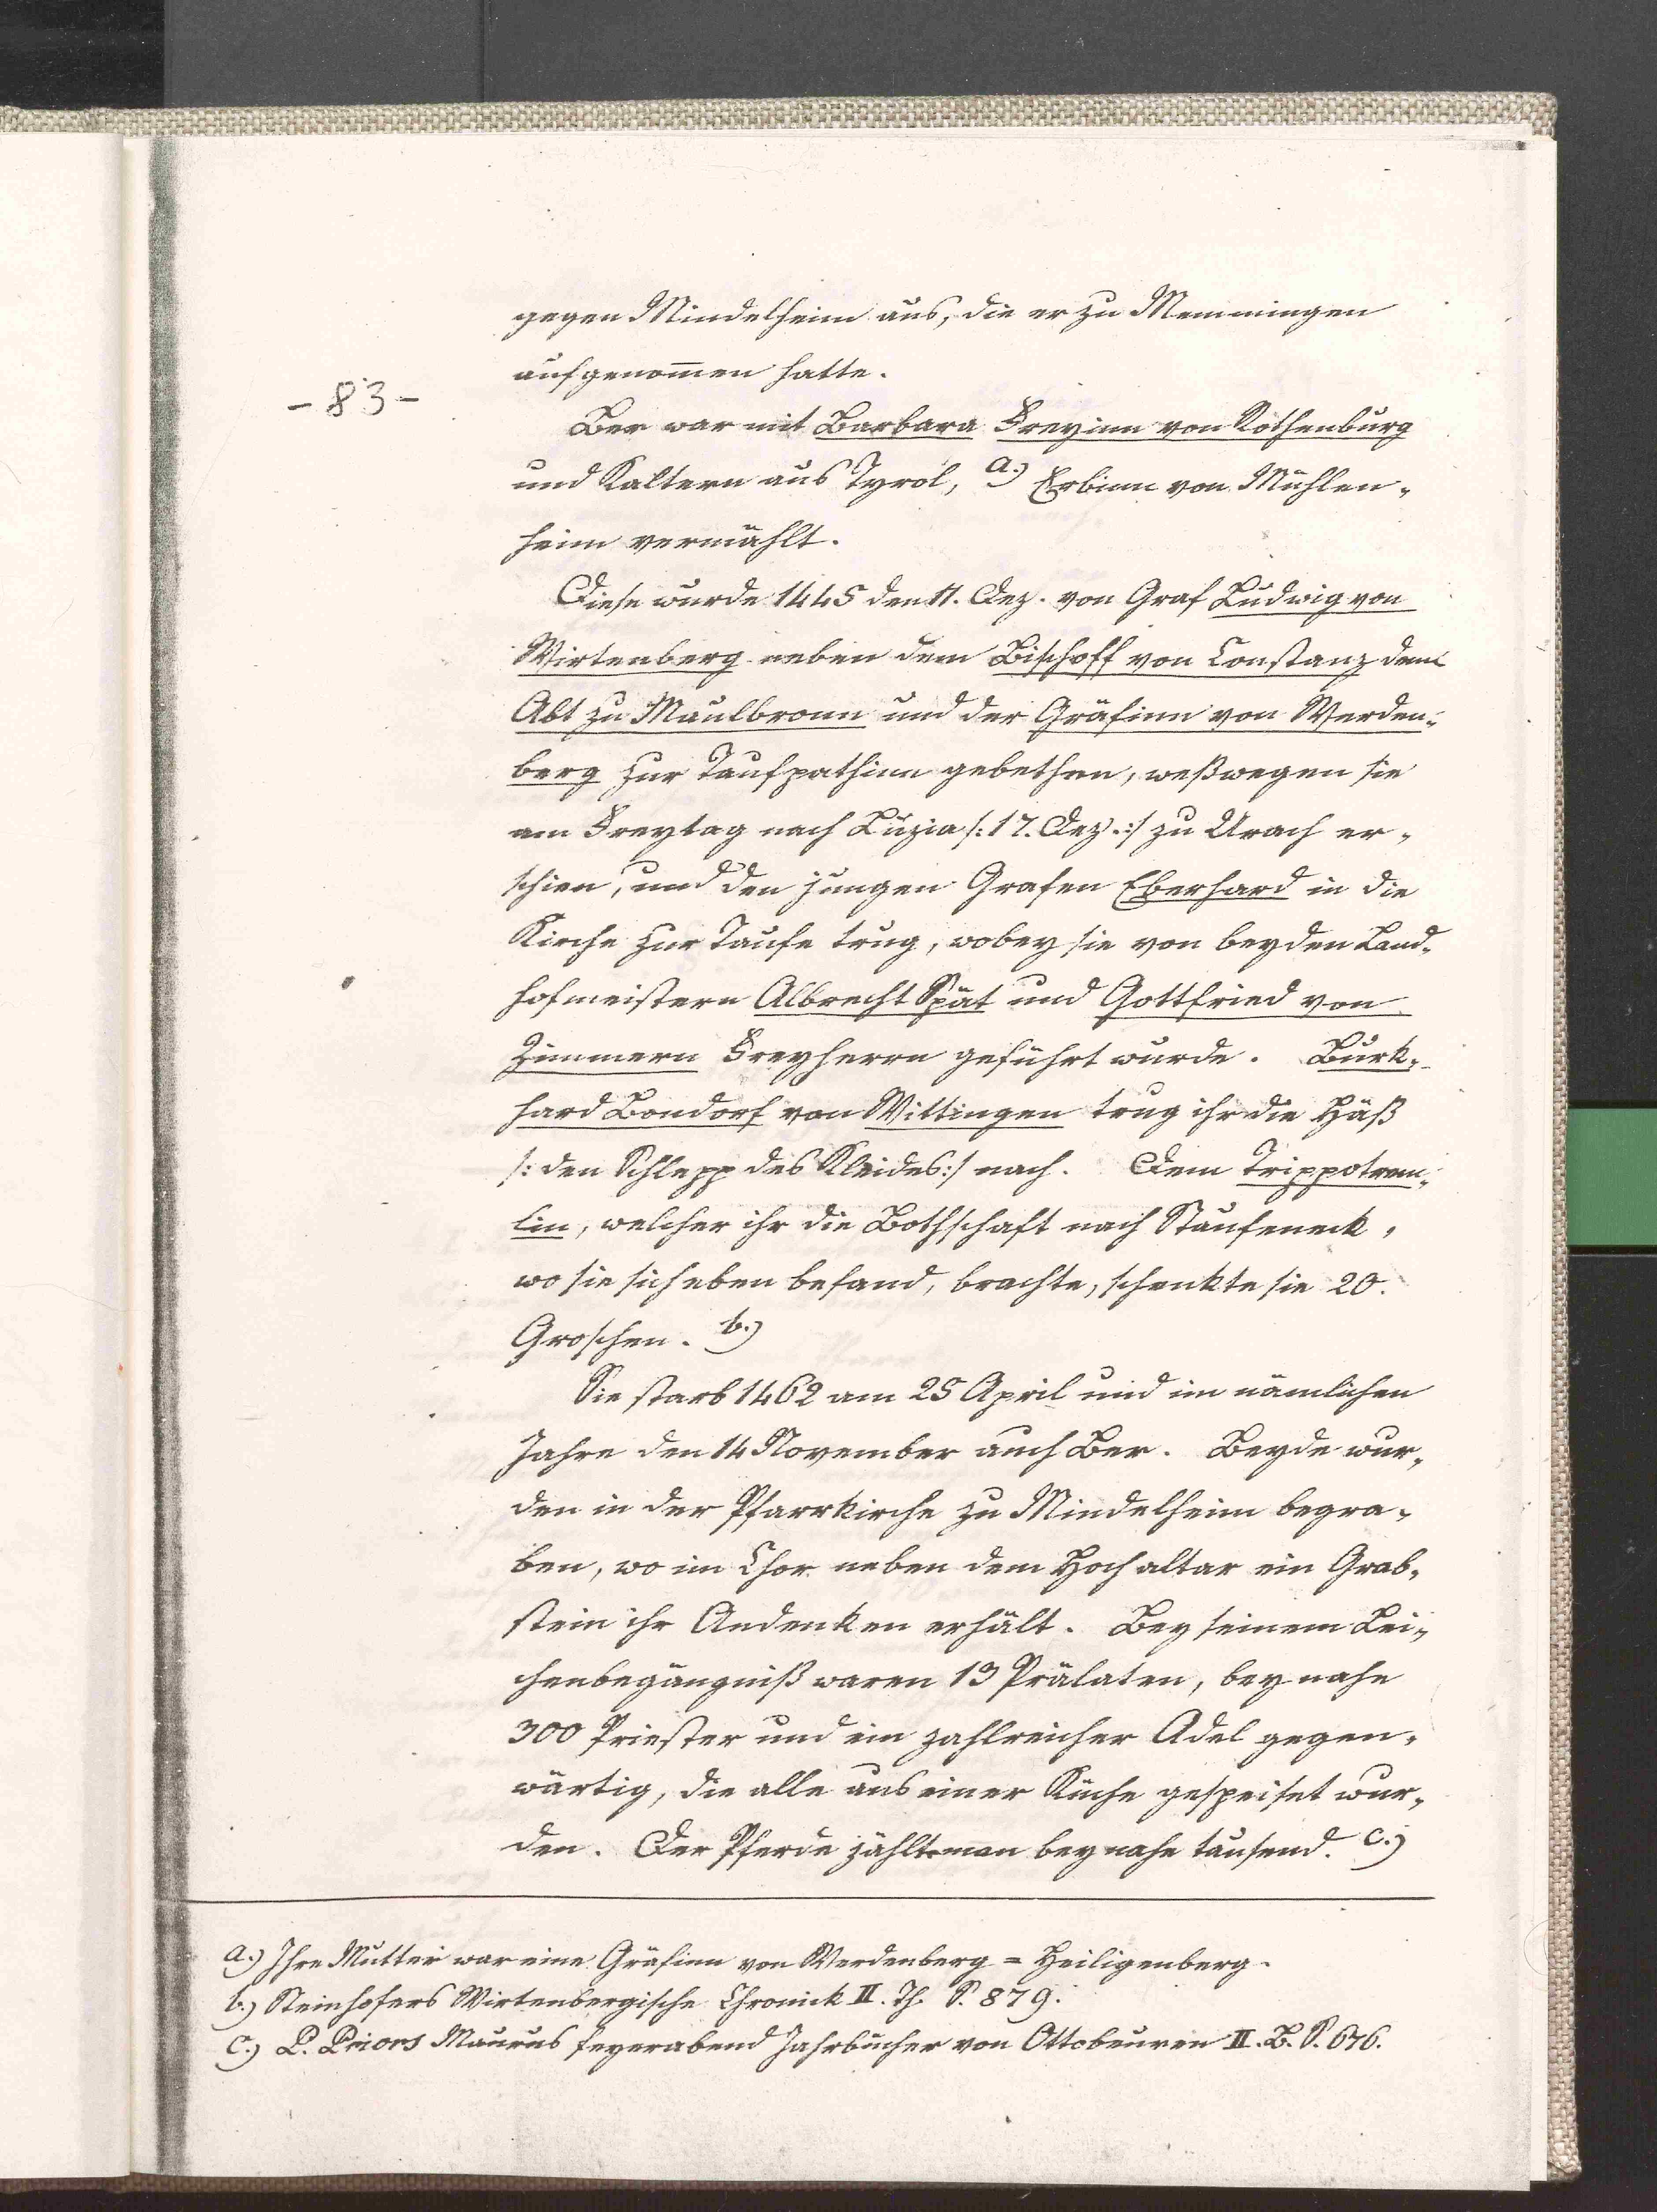 gegen Mindelheim aus, die er zu Memmingen
aufgenom̄en hatte.
-83-
Ber war mit Barbara Freyinn von Rothenburg
und Kaltern aus Tyrol, a.) Erbinn von Mühlen„
heim vermählt.
Diese wurde 1445 den 11. Dez. von Graf Ludwig von
Wirtenberg neben dem Bischoff von Constanz dem
Abt zu Maulbronn und der Gräfinn von Werden„
berg zur Taufpathinn gebethen, weßwegen sie
am Freytag nach Luzia /: 17. Dez. :/ zu Urach er„
schien, und den jungen Grafen Eberhard in die
Kirche zur Taufe trug, wobey sie von beyden Land„
hofmeistern Albrecht Spät und Gottfried von
Zimmern Freyherrn geführt wurde. Burk„
hard Bondorf von Wittingen trug ihr die Häß
/: den Schlepp des Kleides :/ nach. Dem Trippotrem„
lin, welcher ihr die Bothschaft nach Staufeneck,
wo sie sich eben befand, brachte, schenkte sie 20.
Groschen. b.)
Sie starb 1462 am 25 April und im nämlichen
Jahre den 14 November auch Ber. Beyde wur„
den in der Pfarrkirche zu Mindelheim begra„
ben, wo im Chor neben dem Hochaltar ein Grab„
stein ihr Andenken erhält. Bey seinem Lei„
chenbegängniß waren 13 Prälaten, beynahe
300 Priester und ein zahlreicher Adel gegen„
wärtig, die alle aus einer Küche gespeiset wur„
den. Der Pferde zählte man beynahe tausend. c.)
a.) Ihre Mutter war eine Gräfinn von Werdenberg = Heiligenberg.
b.) Steinhofers Wirtenbergische Chronick II. Th. S. 879.
c.) P. Priors Maurus Feyerabend Jahrbücher von Ottobeuren II. B. S. 676.